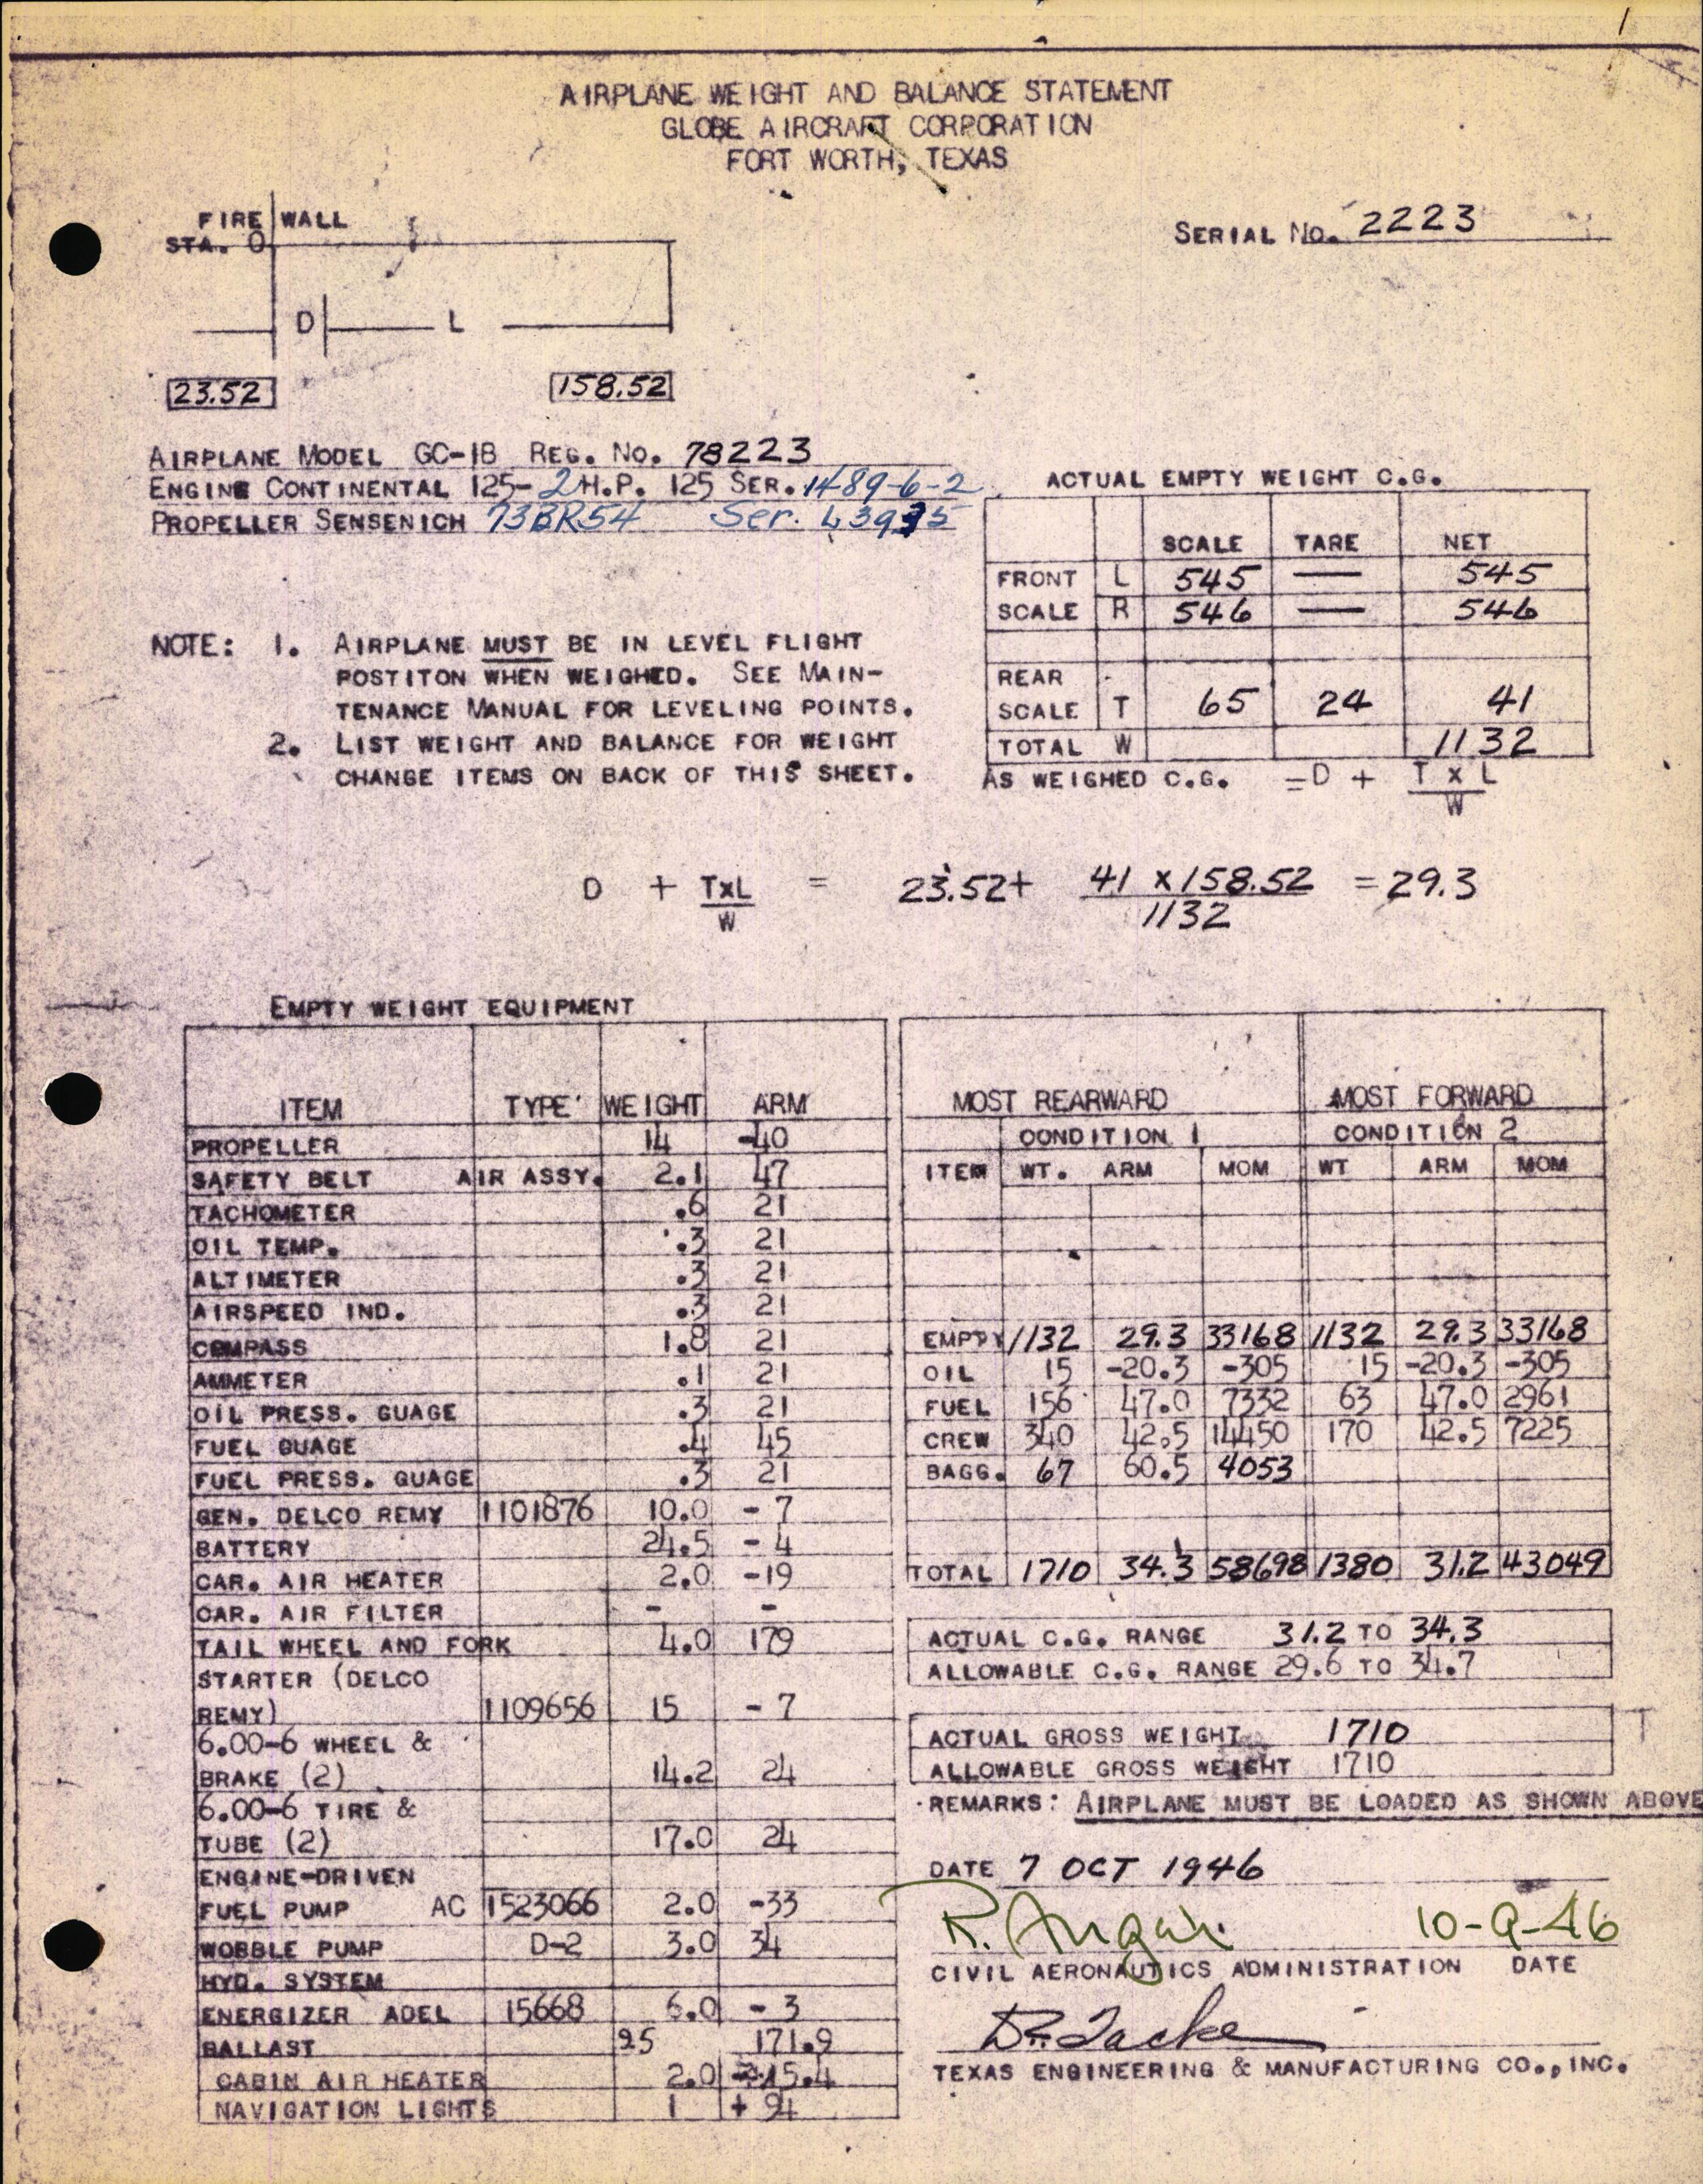 1
AIRPLANE WEIGHT AND BALANCE STATEMENT
GLOBE AIRCRAFT CORPORATION
FORT WORTH, TEXAS
FIRE WALL
STA. O
SERIAL NO. 2223
D L
23.52 158.52
AIRPLANE MODEL GC-1B REG. NO. 78223
ENGINE CONTINENTAL 125-2 H.P. 125 SER. 1489-6-2
PROPELLER SENSENICH 73BR54 Ser. 43935
ACTUAL EMPTY WEIGHT C.G.
SCALE TARE NET
FRONT L 545 — 545
SCALE R 546 — 546
REAR
SCALE T 65 24 41
TOTAL W 1132
AS WEIGHED C.G. =D + T X L
W
NOTE: 1. AIRPLANE MUST BE IN LEVEL FLIGHT
POSTITON WHEN WEIGHED. SEE MAIN-
TENANCE MANUAL FOR LEVELING POINTS.
2. LIST WEIGHT AND BALANCE FOR WEIGHT
CHANGE ITEMS ON BACK OF THIS SHEET.
D + TXL = 23.52+ 41 X 158.52 = 29.3
W 1132
EMPTY WEIGHT EQUIPMENT
ITEM TYPE WEIGHT ARM
PROPELLER 14 -40
SAFETY BELT AIR ASSY. 2.1 47
TACHOMETER .6 21
OIL TEMP. .3 21
ALTIMETER .3 21
AIRSPEED IND. .3 21
COMPASS 1.8 21
AMMETER .1 21
OIL PRESS. GUAGE .3 21
FUEL GUAGE .4 45
FUEL PRESS. GUAGE .3 21
GEN. DELCO REMY 1101876 10.0 - 7
BATTERY 24.5 - 4
CAR. AIR HEATER 2.0 -19
CAR. AIR FILTER - -
TAIL WHEEL AND FORK 4.0 179
STARTER (DELCO
REMY) 1109656 15 - 7
6.00-6 WHEEL &
BRAKE (2) 14.2 24
6.00-6 TIRE &
TUBE (2) 17.0 24
ENGINE-DRIVEN
FUEL PUMP AC 1523066 2.0 -33
WOBBLE PUMP D-2 3.0 34
HYD. SYSTEM
ENERGIZER ADEL 15668 6.0 - 3
BALLAST 25 171.9
CABIN AIR HEATER 2.0 15.4
NAVIGATION LIGHTS 1 + 94
MOST REARWARD MOST FORWARD
CONDITION 1 CONDITION 2
ITEM WT. ARM MOM WT ARM MOM
EMPTY 1132 29.3 33168 1132 29.3 33168
OIL 15 -20.3 -305 15 -20.3 -305
FUEL 156 47.0 7332 63 47.0 2961
CREW 340 42.5 14450 170 42.5 7225
BAGG. 67 60.5 4053
TOTAL 1710 34.3 58698 1380 31.2 43049
ACTUAL C.G. RANGE 31.2 TO 34.3
ALLOWABLE C.G. RANGE 29.6 TO 34.7
ACTUAL GROSS WEIGHT 1710
ALLOWABLE GROSS WEIGHT 1710
T
REMARKS: AIRPLANE MUST BE LOADED AS SHOWN ABOVE
DATE 7 OCT 1946
R. 10-9-46
CIVIL AERONAUTICS ADMINISTRATION DATE
TEXAS ENGINEERING & MANUFACTURING CO., INC.